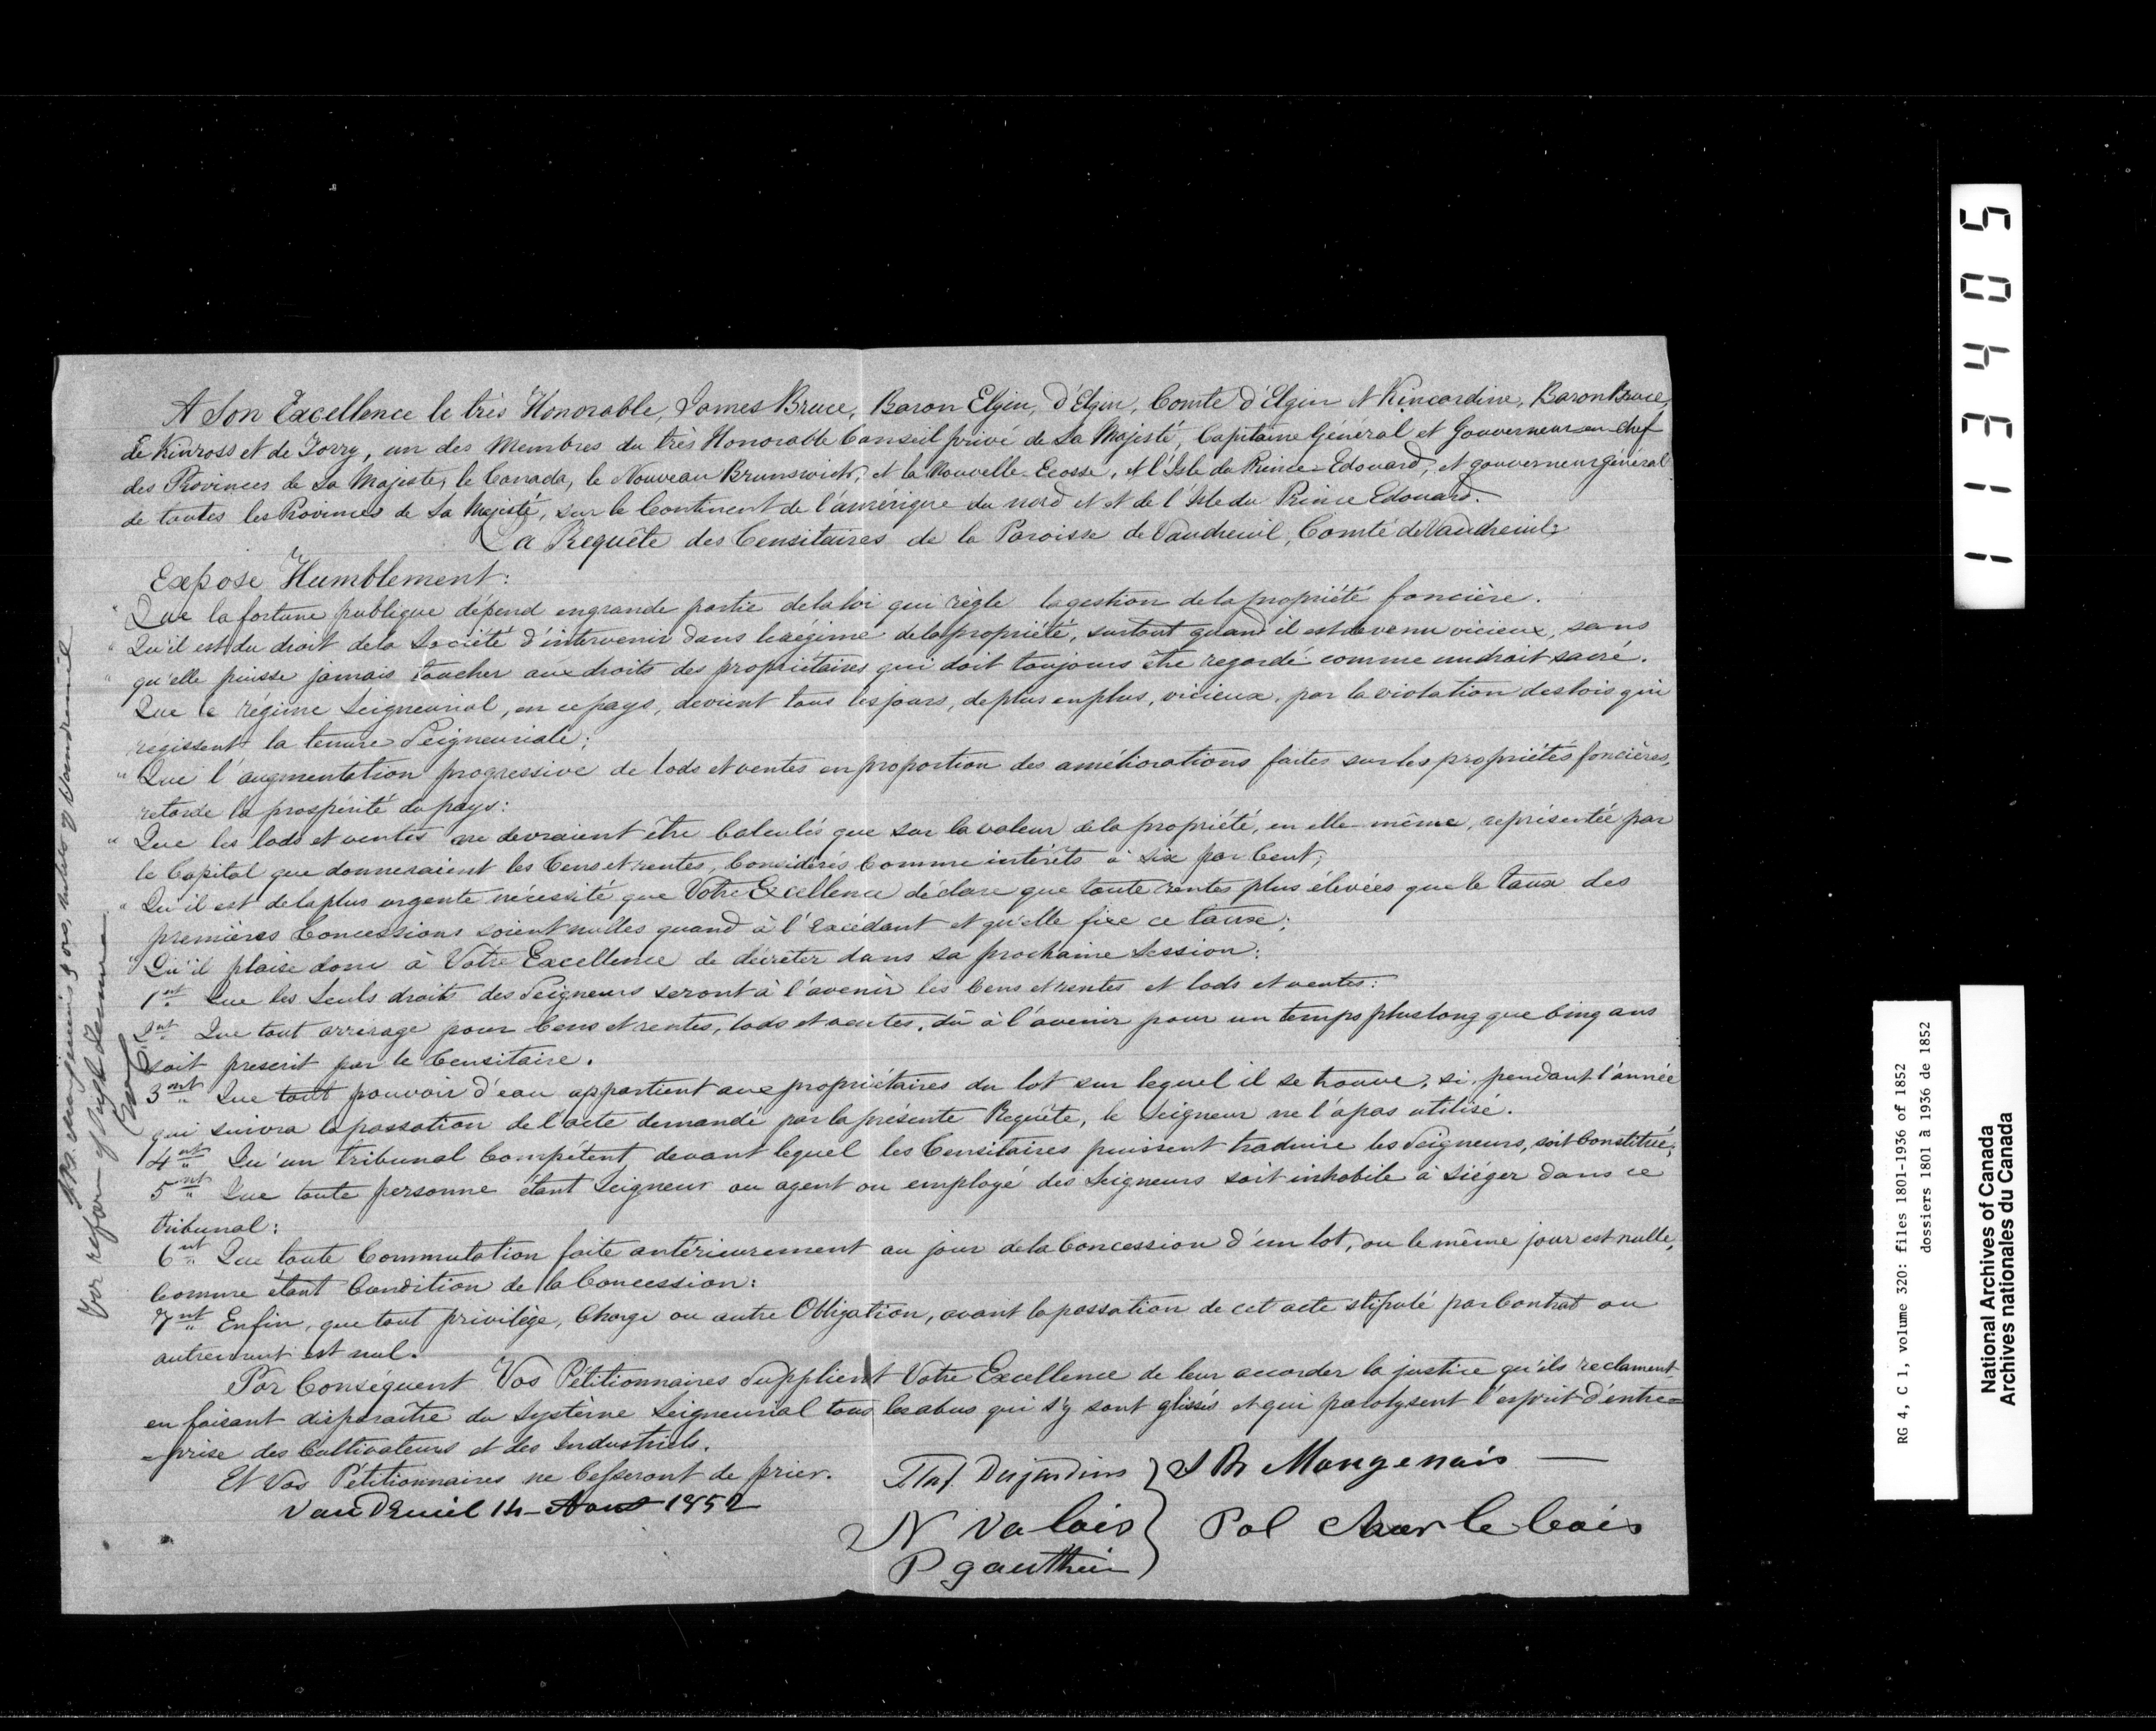 A Son Excellence le très Honorable, James Bruce, Baron Elgin, d'Elgin, Comte d'Elgin et Kincardine, Baron Bruce,
de Kinross et de Torry, un des Membres du très Honorable Conseil privé de Sa Majesté, Capitaine Général et Gouverneur en chef
des Provinces de Sa Majesté, le Canada, le Nouveau Brunswick, et la Nouvelle-Ecosse, et l'Isle du Prince-Edouard, et gouverneur général
de toutes les Provinces de Sa Majesté, sur le Continent de l'amérique du nord et et de l'Isle du Prince Edouard.
La Requête des Censitaires de la Paroisse de Vaudreuil, Comté de Vaudreuil;
Expose Humblement:
" Que la fortune publique dépend en grande partie de la loi qui règle la gestion de la propriété foncière.
" Qu'il est du droit de la Société d'intervenir dans le régime de la propriété, surtout quand il est devenu vicieux, sans
" qu'elle puisse jamais toucher aux droits des propriétaires qui doit toujours être regardé comme un droit sacré.
Que le régime Seigneurial, en ce pays, devient tous les jours, de plus en plus, vicieux, par la violation des lois qui
régissent la tenure Seigneuriale;
" Que l'augmentation progressive de lods et ventes en proportion des améliorations faites sur les propriétés foncières,
retarde la prospérité du pays:
" Que les lods et ventes ne devraient être Calculés que sur la valeur de la propriété, en elle-même, représentée par
le Capital que donneraient les Cens et rentes, Considérés Comme intérêts à six par Cent;
" Qu'il est de la plus urgente nécessité que Votre Excellence déclare que toute rentes plus élevées que le taux des
premières Concessions soient nulles quand à l'Excédant et qu'elle fixe ce taux;
" Qu'il plaise donc à Votre Excellence de décréter dans sa prochaine Session:
1nt Que les Seuls droits des Seigneurs seront à l'avenir les Cens et rentes et lods et ventes:
2nt Que tout arrérage pour Cens et rentes, lods et ventes, dû à l'avenir pour un temps plus long que Cinq ans
soit prescrit par le Censitaire.
3nt Que tout pouvoir d'eau appartient aux propriétaires du lot sur lequel il se trouve, si, pendant l'année
qui suivra la passation de l'acte demandé par la présente Requête, le Seigneur ne l'a pas utilisé.
4nt Qu'un tribunal Compétent devant lequel les Censitaires puissent traduire les Seigneurs, soit Constitué;
5nt Que toute personne étant Seigneur ou agent ou employé des Seigneurs soit inhabile à Siéger dans ce
tribunal:
6nt Que toute Commutation faite antérieurement au jour de la Concession d'un lot, ou le même jour est nulle,
Comme étant Condition de la Concession:
7nt Enfin, que tout privilège, Charge ou autre Obligation, avant la passation de cet acte stipulé par Contrat ou
autrement est nul.
Par Conséquent Vos Pétitionnaires Supplient Votre Excellence de leur accorder la justice qu'ils reclament
en faisant disparaître du Système Seigneurial tous les abus qui s'y sont glissés et qui paralysent l'esprit d'entre=
=prise des Cultivateurs et des Industriels.
Et Vos Pétitionnaires ne Cesseront de prier.
Vaudreuil 14 - Aout 1852
Desjardins
J Bt Mongenais
N Valois
Pol Charlebois
P gauthier
11 3 4 0 5
RG 4, C 1, volume 320: files 1801-1936 of 1852
dossiers 1801 à 1936 de 1852
National Archives of Canada
Archives nationales du Canada